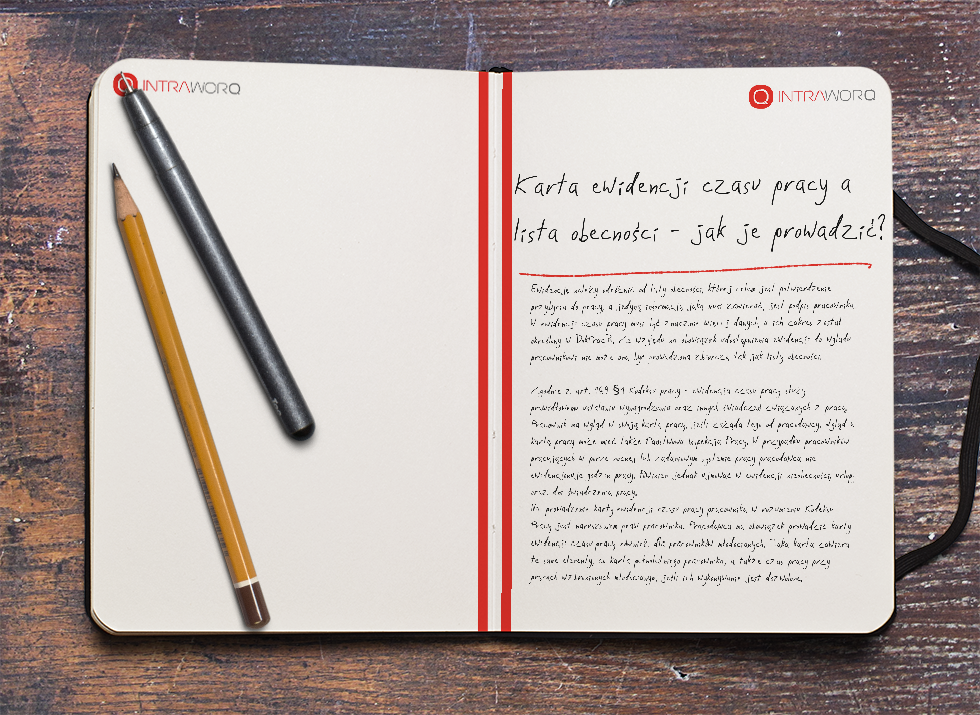 INTRAWORQ
INTRAWORQ
Karta ewidencji czasu pracy a
lista obecności - jak je prowadzić?
Ewidencję należy odróżnić od listy obecności, której celem jest potwierdzenie
przybycia do pracy, a jedyną informacją, jaką musi zawierać, jest podpis pracownika.
W ewidencji czasu pracy musi być znacznie więcej danych, a ich zakres został
określony w Ze względu na obowiązek udostępnienia ewidencji do wglądu
pracownikowi nie może ona być prowadzona zbiorczo, tak jak listy obecności.
Zgodnie z art. 149 §1 Kodeksu pracy - ewidencja czasu pracy służy
prawidłowemu ustaleniu wynagrodzenia oraz innych świadczeń związanych z pracą.
Pracownik ma wgląd w swoją kartę pracy, jeśli zażąda tego od pracodawcy. Wgląd w
kartę pracy może mieć także Państwowa Inspekcja Pracy. W przypadku pracowników
pracujących w porze nocnej lub zadaniowym systemie pracy pracodawca nie
ewidencjonuje godzin pracy. Powinien jednak ujmować w ewidencji nieobecności, urlopy
oraz dni świadczenia pracy.
prowadzenie karty ewidencji czasu pracy pracownika w rozumieniu Kodeksu
Pracy jest naruszeniem praw pracownika. Pracodawca ma obowiązek prowadzić karty
ewidencji czasu pracy również dla pracowników młodocianych. Taka karta zawiera
te same elementy, co karta pełnoletniego pracownika, a także czas pracy przy
pracach wzbronionych młodocianym, jeśli ich wykonywanie jest dozwolone.